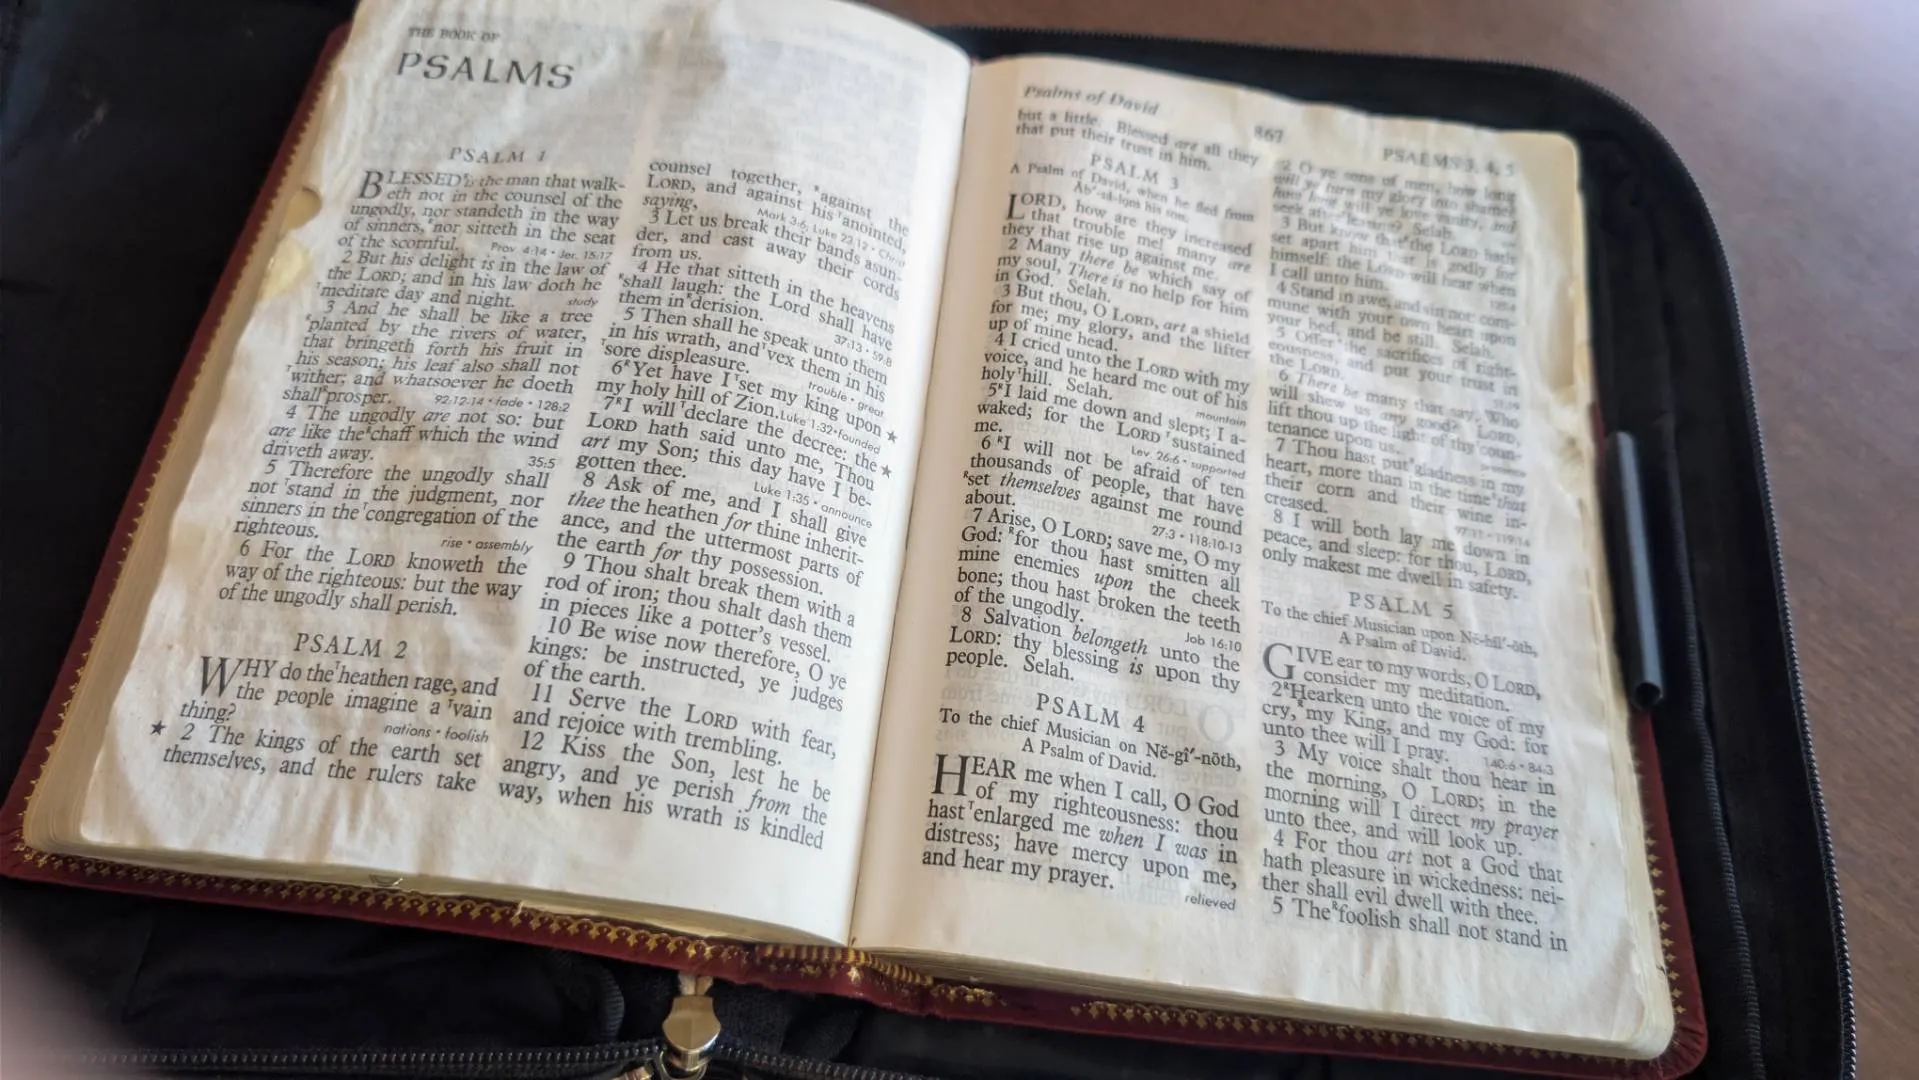 THE BOOK OF
PSALMS
PSALM 1
BLESSED is the man that walk-
eth not in the counsel of the
ungodly, nor standeth in the way
of sinners, ᴿnor sitteth in the seat
of the scornful. Prov 4:14 • Jer. 15:17
2 But his delight is in the law of
the LORD; and in his law doth he
ᵀmeditate day and night. study
3 And he shall be like a tree
ᴿplanted by the rivers of water,
that bringeth forth his fruit in
his season; his leaf also shall not
ᵀwither; and whatsoever he doeth
shallᴿprosper. 92:12-14 • fade • 128:2
4 The ungodly are not so: but
are like theᴿchaff which the wind
driveth away. 35:5
5 Therefore the ungodly shall
not ᵀstand in the judgment, nor
sinners in theᵀcongregation of the
righteous. rise • assembly
6 For the LORD knoweth the
way of the righteous: but the way
of the ungodly shall perish.
PSALM 2
WHY do theᵀheathen rage, and
the people imagine a ᵀvain
thing? nations • foolish
★ 2 The kings of the earth set
themselves, and the rulers take
counsel together, ᴿagainst the
LORD, and against his ᵀanointed,
saying, Mark 3:6; Luke 22:12 • Christ
3 Let us break their bands asun-
der, and cast away their cords
from us.
4 He that sitteth in the heavens
ᴿshall laugh: the Lord shall have
them inᴿderision. 37:13 • 59:8
5 Then shall he speak unto them
in his wrath, andᵀvex them in his
ᵀsore displeasure. trouble • great
6ᴿYet have Iᵀset my king upon ★
my holy hill of Zion. Luke 1:32 • founded
7ᴿI will ᵀdeclare the decree: the ★
LORD hath said unto me, Thou
art my Son; this day have I be-
gotten thee. Luke 1:35 • announce
8 Ask of me, and I shall give
thee the heathen for thine inherit-
ance, and the uttermost parts of
the earth for thy possession.
9 Thou shalt break them with a
rod of iron; thou shalt dash them
in pieces like a potter's vessel.
10 Be wise now therefore, O ye
kings: be instructed, ye judges
of the earth.
11 Serve the LORD with fear,
and rejoice with trembling.
12 Kiss the Son, lest he be
angry, and ye perish from the
way, when his wrath is kindled
Psalms of David
867
PSALMS 3, 4, 5
but a little. Blessed are all they
that put their trust in him.
PSALM 3
A Psalm of David, when he fled from
Ăb′-să-lŏm his son.
LORD, how are they increased
that trouble me! many are
they that rise up against me.
2 Many there be which say of
my soul, There is no help for him
in God. Selah.
3 But thou, O LORD, art a shield
for me; my glory, and the lifter
up of mine head.
4 I cried unto the LORD with my
voice, and he heard me out of his
holyᵀhill. Selah. mountain
5ᴿI laid me down and slept; I a-
waked; for the LORD ᵀsustained
me. Lev. 26:6 • supported
6 ᴿI will not be afraid of ten
thousands of people, that have
ᴿset themselves against me round
about. 27:3 • 118:10-13
7 Arise, O LORD; save me, O my
God: ᴿfor thou hast smitten all
mine enemies upon the cheek
bone; thou hast broken the teeth
of the ungodly. Job 16:10
8 Salvation belongeth unto the
LORD: thy blessing is upon thy
people. Selah.
PSALM 4
To the chief Musician on Nĕ-gî′-nōth,
A Psalm of David.
HEAR me when I call, O God
of my righteousness: thou
hast ᵀenlarged me when I was in
distress; have mercy upon me,
and hear my prayer. relieved
2 O ye sons of men, how long
will ye turn my glory into shame?
how long will ye love vanity, and
seek after leasing? Selah.
3 But know that the LORD hath
set apart him that is godly for
himself: the LORD will hear when
I call unto him.
4 Stand in awe, and sin not: com-
mune with your own heart upon
your bed, and be still. Selah.
5 Offer the sacrifices of right-
eousness, and put your trust in
the LORD.
6 There be many that say, Who
will shew us any good? LORD,
lift thou up the light of thy coun-
tenance upon us.
7 Thou hast putᴿgladness in my
heart, more than in the timeᴿthat
their corn and their wine in-
creased. 97:11 • 119:14
8 I will both lay me down in
peace, and sleep: for thou, LORD,
only makest me dwell in safety.
PSALM 5
To the chief Musician upon Nĕ-hîl′-ōth,
A Psalm of David.
GIVE ear to my words, O LORD,
consider my meditation.
2ᴿHearken unto the voice of my
cry,ᴿmy King, and my God: for
unto thee will I pray. 140:6 • 84:3
3 My voice shalt thou hear in
the morning, O LORD; in the
morning will I direct my prayer
unto thee, and will look up.
4 For thou art not a God that
hath pleasure in wickedness: nei-
ther shall evil dwell with thee.
5 Theᴿfoolish shall not stand in